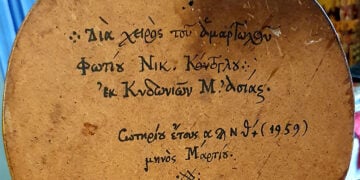 Διὰ χειρὸς τοῦ ἁμαρτωλοῦ
Φωτίου Νικ. Κόντογλου
ἐκ Κυδωνιῶν Μ. Ἀσίας.
Σωτηρίου ἔτους α Ϡ Ν θ΄ (1959)
μηνὸς Μαρτίου.